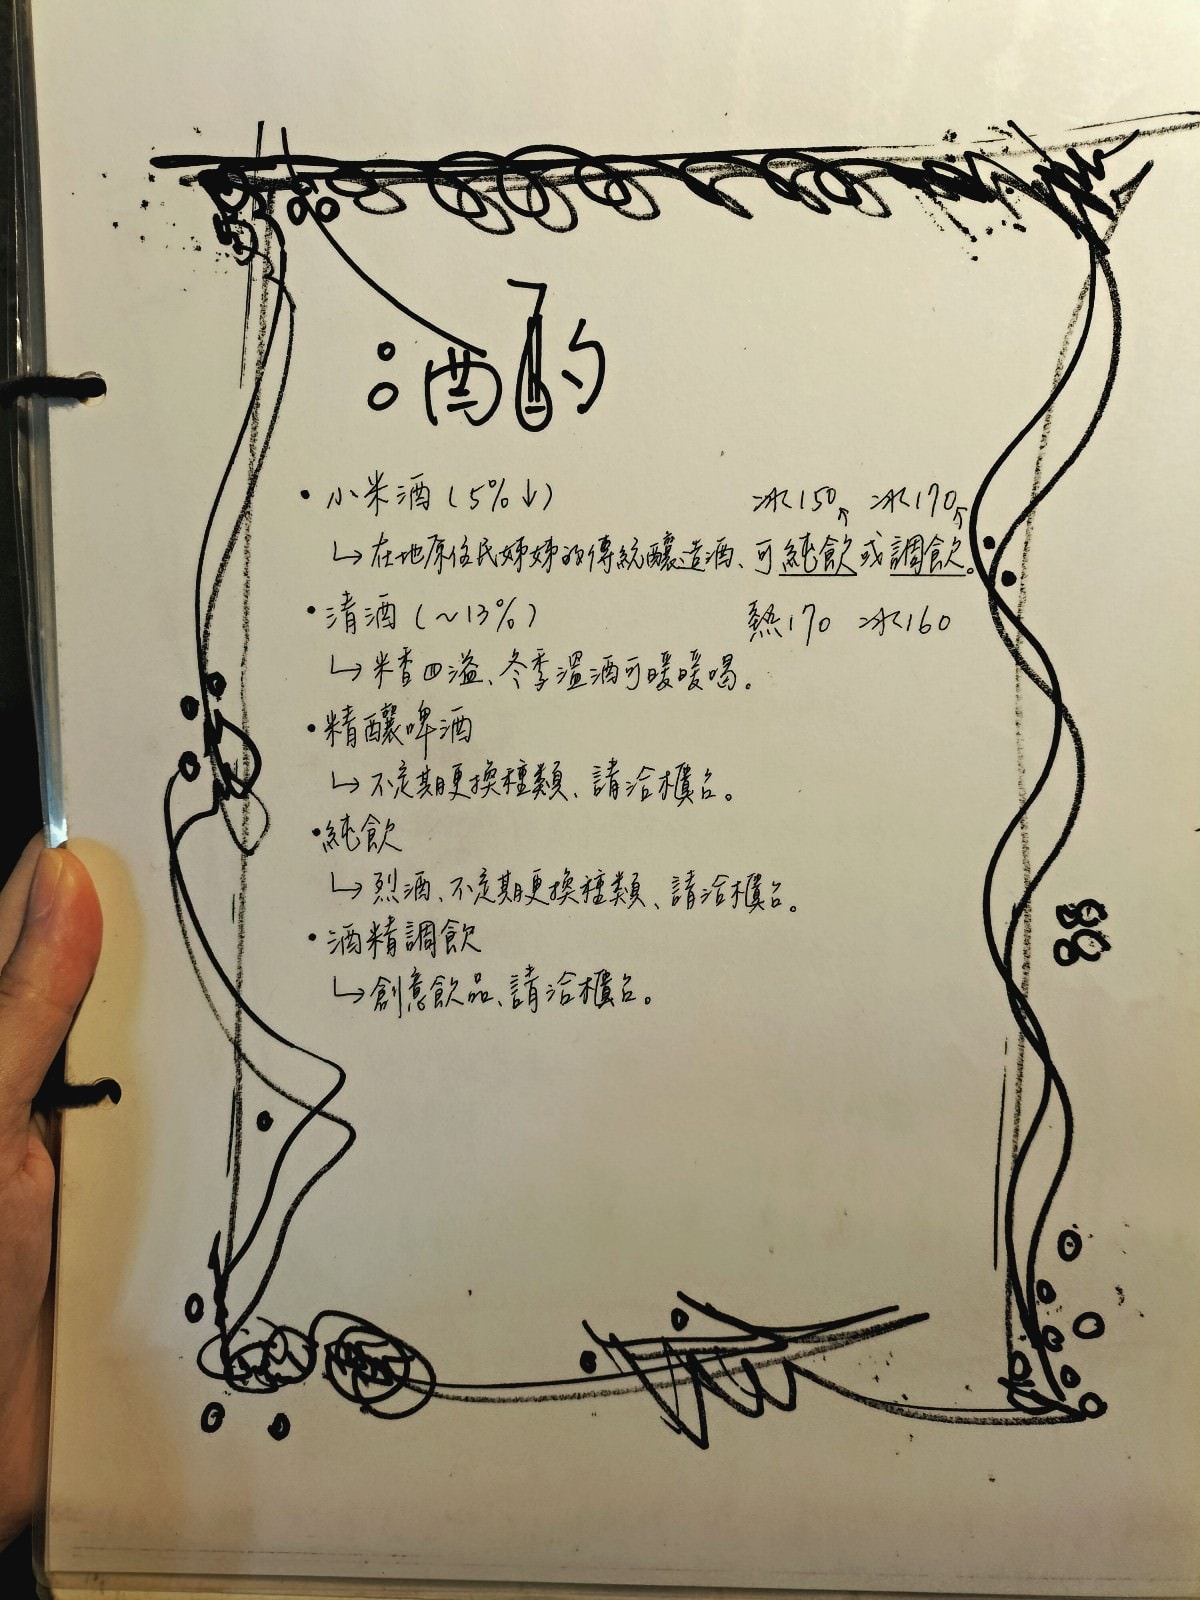 酒酌
• 小米酒(5%↓) 冰150 冰170
↳在地原住民姊姊的傳統釀造酒、可純飲或調飲。
• 清酒(~13%) 熱170 冰160
↳米香四溢、冬季溫酒可暖暖喝。
• 精釀啤酒
↳不定期更換種類、請洽櫃台。
• 純飲
↳烈酒、不定期更換種類、請洽櫃台。
• 酒精調飲
↳創意飲品、請洽櫃台。